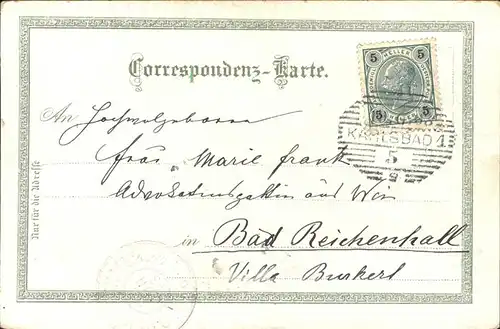 Correspondenz-Karte.
5 HELLER 5
5 5
KARLSBAD 1
5
5
An Hochwolgeboren
Frau Marie Frank
Advokatensgattin aus Wien
in Bad Reichenhall
Villa Burkert
Nur für die Adresse